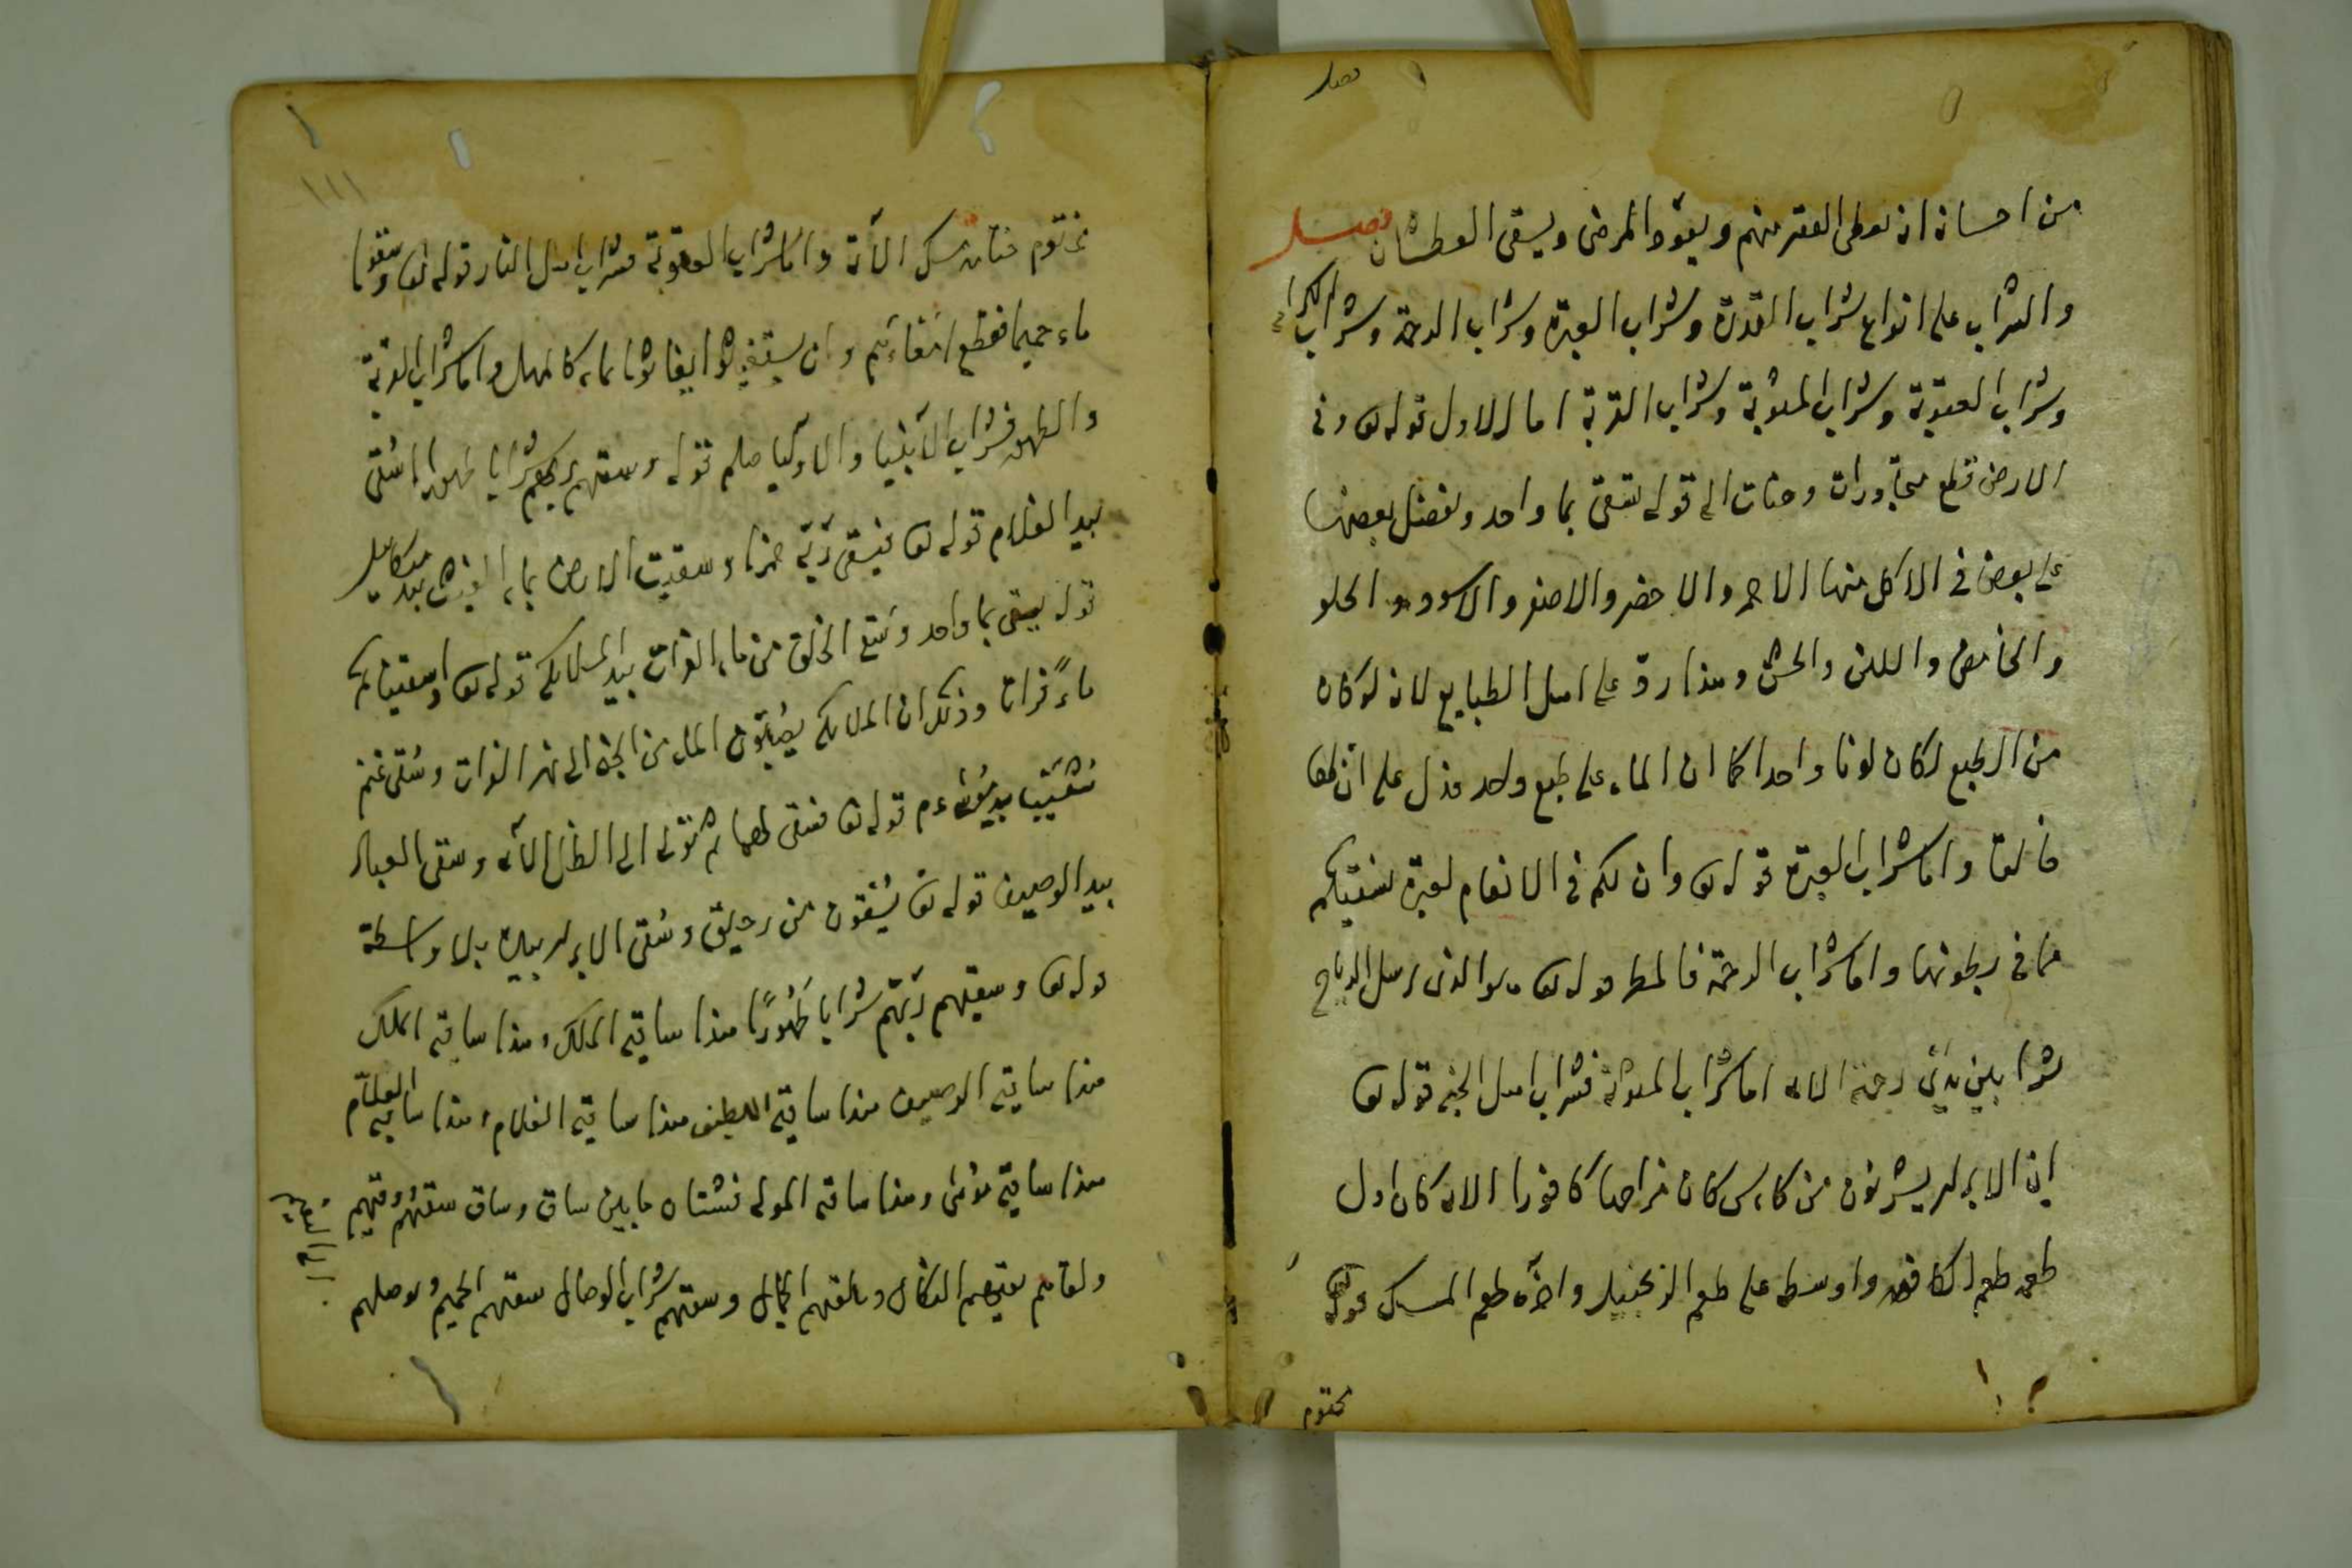 فصل
من احسانه ان يعطى الفقير منهم ويعود المرضى ويسقى العطشان فصل
والشراب على انواع شراب القدرة وشراب العبرة وشراب الرحمة وشراب الكرامة
وشراب العقوبة وشراب المثوبة وشراب القربة اما الاول قوله تع وفى
الارض قطع متجاورات وجنات الى قوله يسقى بماء واحد ونفضل بعضها
على بعض فى الاكل منها الاحمر والاخضر والاصفر والاسود والحلو
والحامض واللين والخشن وهذا رد على اهل الطبايع لانه لو كان
من الطبع لكان لونا واحدا كما ان الماء على طبع واحد فدل على ان لها
خالقا واما شراب العبرة قوله تع وان لكم فى الانعام لعبرة نسقيكم
مما فى بطونها واما شراب الرحمة فالمطر قوله تع هو الذى يرسل الرياح
بشرا بين يدى رحمته الاية اما شراب المثوبة فشراب اهل الجنة قوله تع
ان الابرار يشربون من كاس كان مزاجها كافورا الاية كان اول
طعمه طعم الكافور واوسطه على طعم الزنجبيل واخره طعم المسك قوله
مختوم
١١١
مختوم ختامه مسك الآية واما شراب العقوبة فشراب اهل النار قوله تع وسقوا
ماء حميما فقطع امعاءهم وان يستغيثوا يغاثوا بماء كالمهل واما شراب القربة
والطهور فشراب الانبيا والاوليا صلم قوله وسقهم ربهم شرابا طهورا سقى
بيد الغلام قوله تع فيسقى ربه خمرا وسقيت الارض بماء الغيث بيد ميكائيل
قوله يسقى بماء واحد وسقى الخلق من ماء الفرات بيد الملائكة قوله تع واسقيناكم
ماءً فراتا وذلك ان الملائكة يصبون الماء من الجنة الى نهر الفرات وسقى غنم
شعيب بيد موسى ءم قوله تع فسقى لهما ثم تولى الى الظل الآية وسقى العباد
بيد الوصيف قوله تع يسقون من رحيق وسقى الابرار بيده بلا واسطة
قوله تع وسقهم ربهم شرابا طهورًا هذا ساقيه الملك وهذا ساقيه الملك
هذا ساقيه الوصيف هذا ساقيه اللطيف هذا ساقيه الغلام وهذا ساقيه العلّام
هذا ساقيه موسى وهذا ساقيه المولى فشتان ما بين ساق وساق سقهم
ولقاهم وسقهم شراب الوصال سقهم الحميم